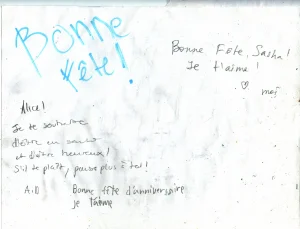 BONNE
fête!
Bonne Fête, Sasha!
Je t'aime!
moi
Alice!
Je te souhaite
d'être en santé
et d'être heureux!
S'il te plaît, pense plus à toi!
A.D
Bonne fête d'anniversaire
je t'aime